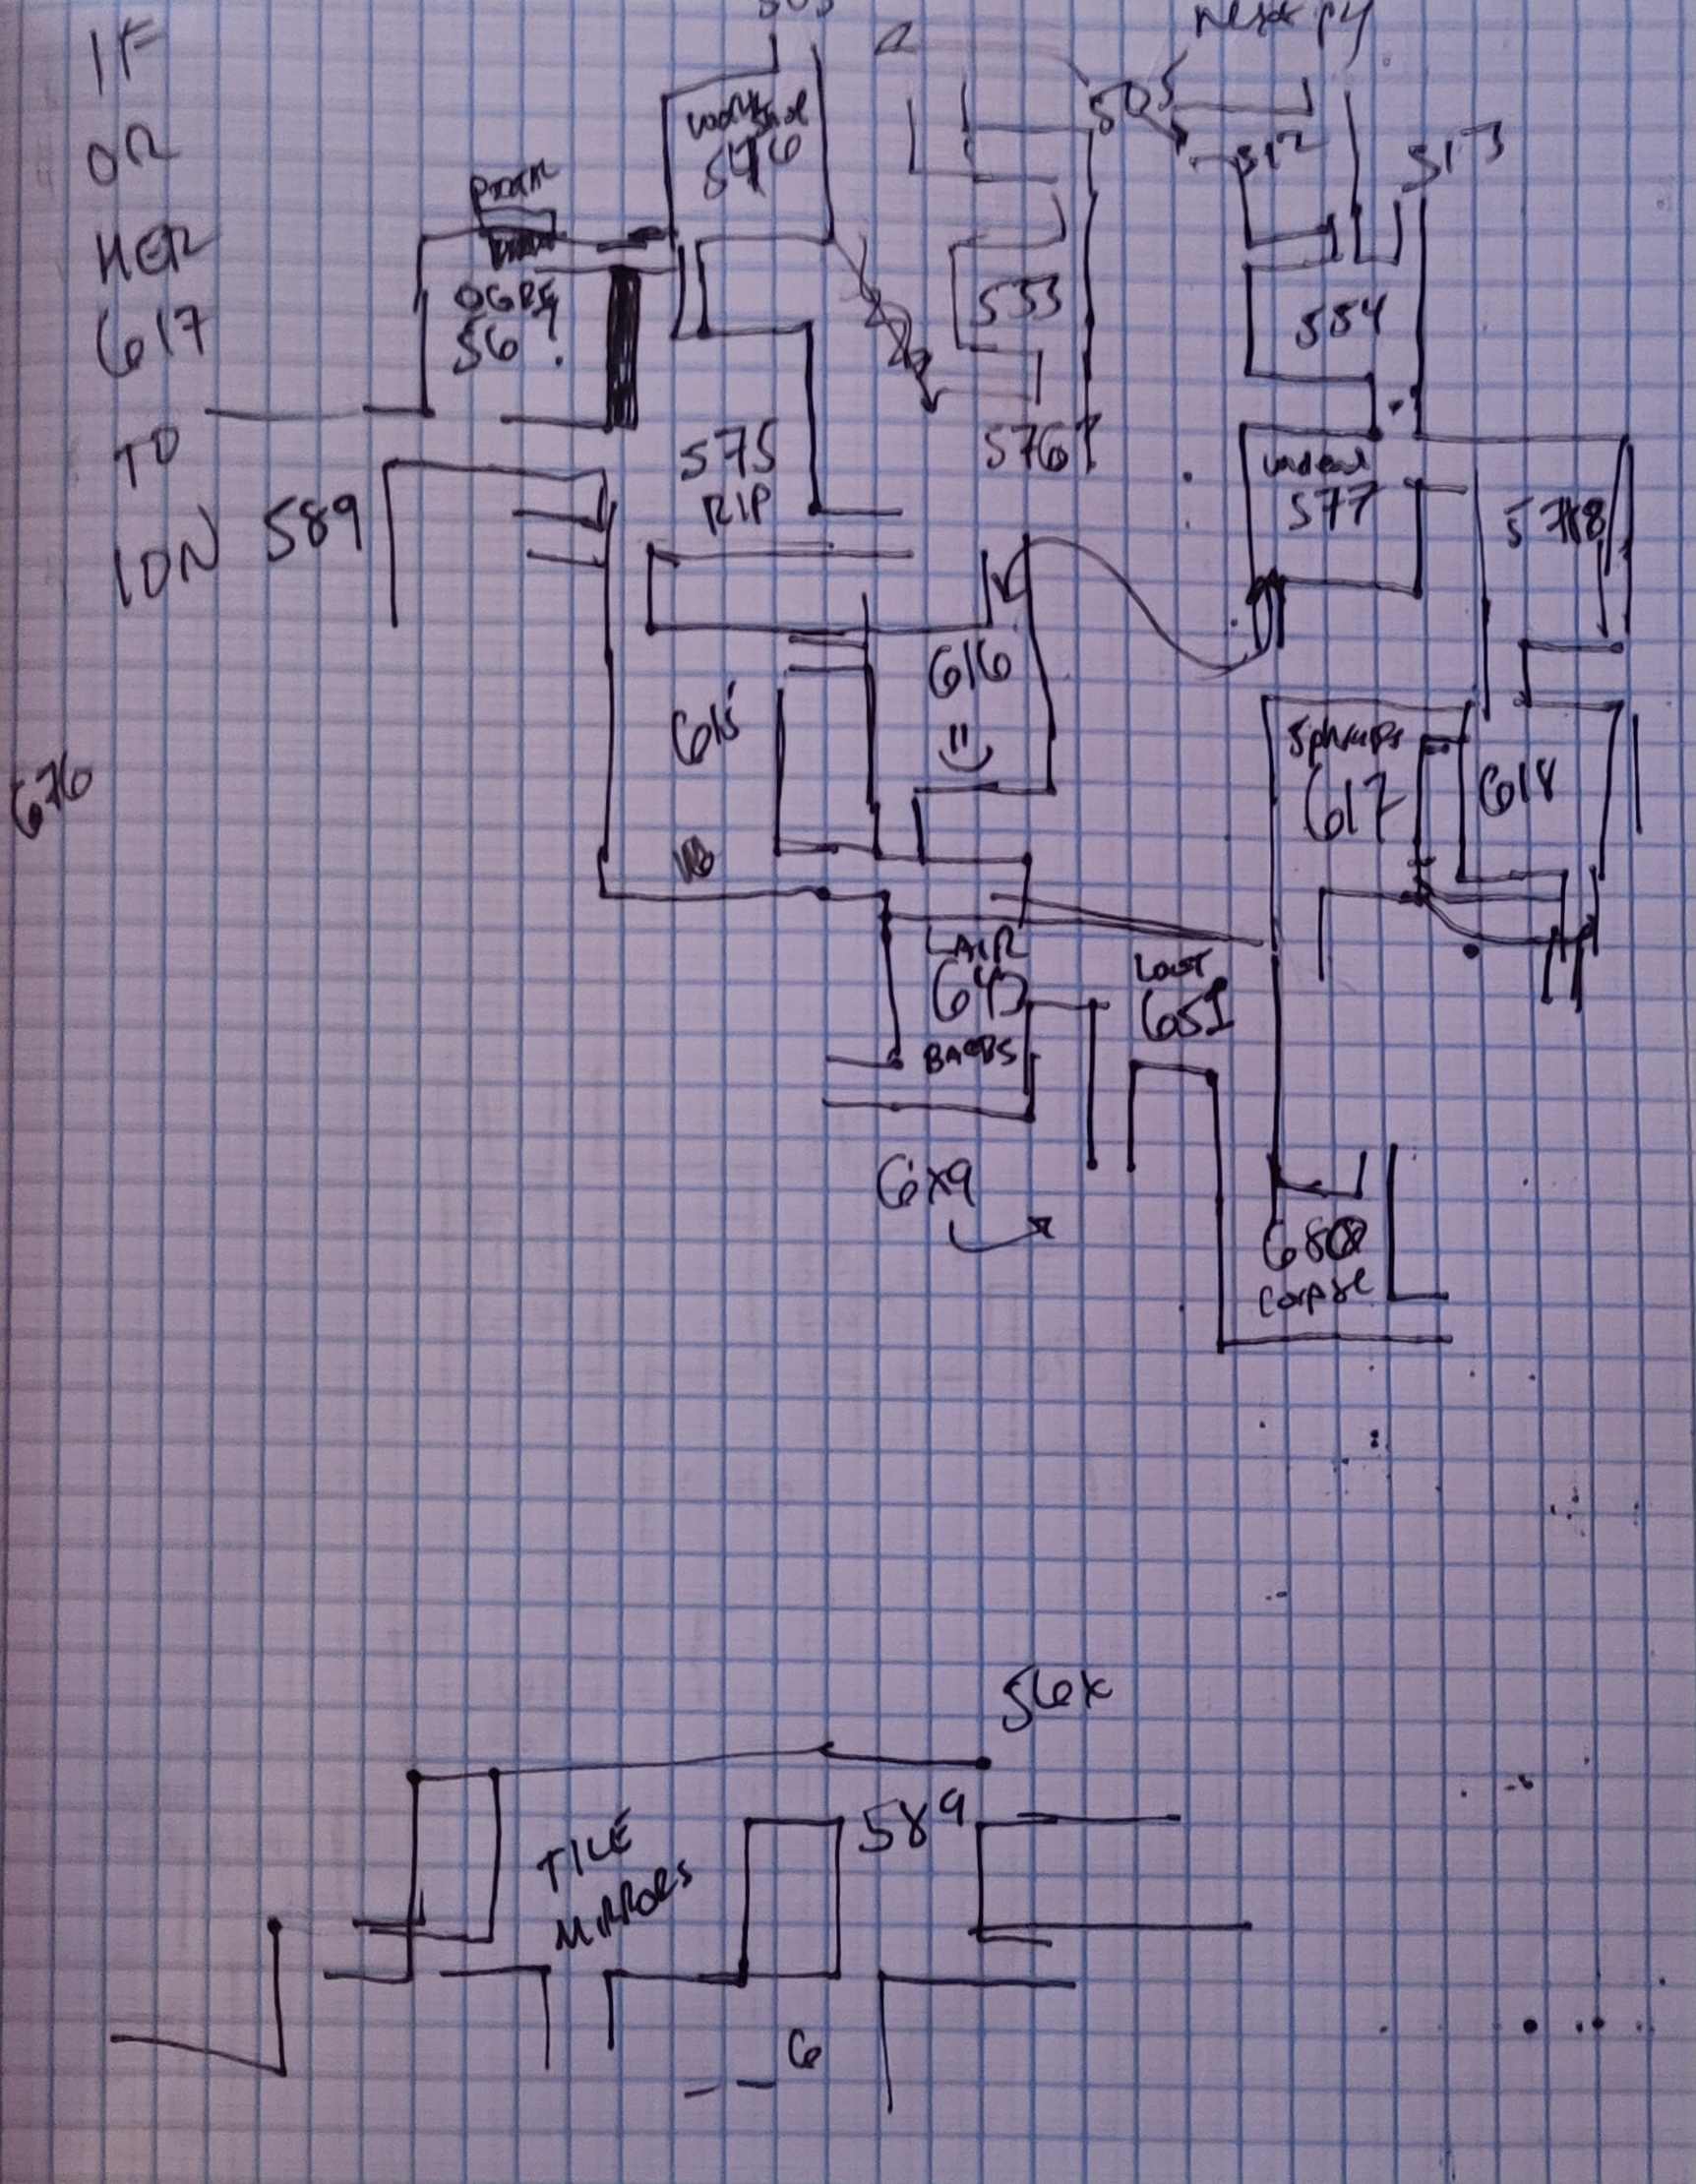 IF
OR
HER
617
TO
ION
589
676
546
OGRE
56?
575
RIP
505
512
513
533
554
576?
577
578
615
616
617
618
LAIR
643
BARBS
LOST
651
6x9
680
corpse
56x
589
TILE
MIRRORS
_ _ 6